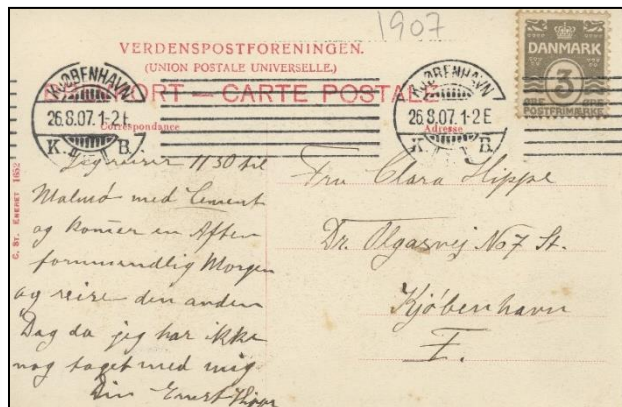 1907
VERDENSPOSTFORENINGEN.
(UNION POSTALE UNIVERSELLE.)
CARTE POSTALE
DANMARK
3
ØRE ØRE
POSTFRIMÆRKE
KJØBENHAVN
26.8.07. 1-2 E
K. B.
KJØBENHAVN
26.8.07. 1-2 E
K. B.
Correspondance
Adresse
G. ST. ENERET 1652
Jeg reiser 11 30 til
Malmø med Cement
og komer en Aften
formmendlig Morgen
og reise den anden
Dag da jeg har ikke
nog taget med mig
Din Ernst
Fru Clara Hippe
Dr. Olgasvej No 7 St.
Kjöbenhavn
F.